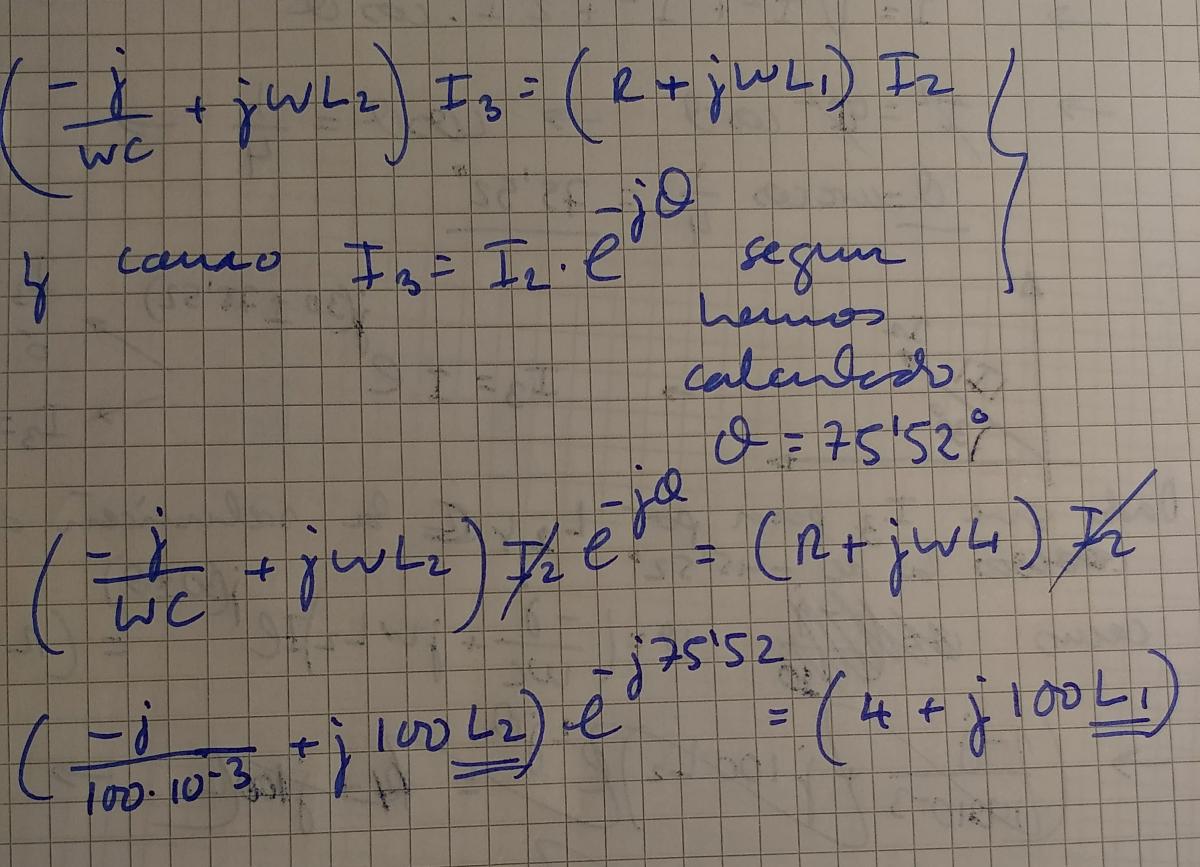 (-j/WC + jWL₂) I₃ = (R + jWL₁) I₂ }
y como I₃ = I₂ · e^(-jθ) segun
hemos
calculado
θ = 75'52°
(-j/WC + jWL₂) I₂ e^(-jθ) = (R + jWL₁) I₂
(-j/100·10⁻³ + j 100 L₂) · e^(-j75'52) = (4 + j 100 L₁)